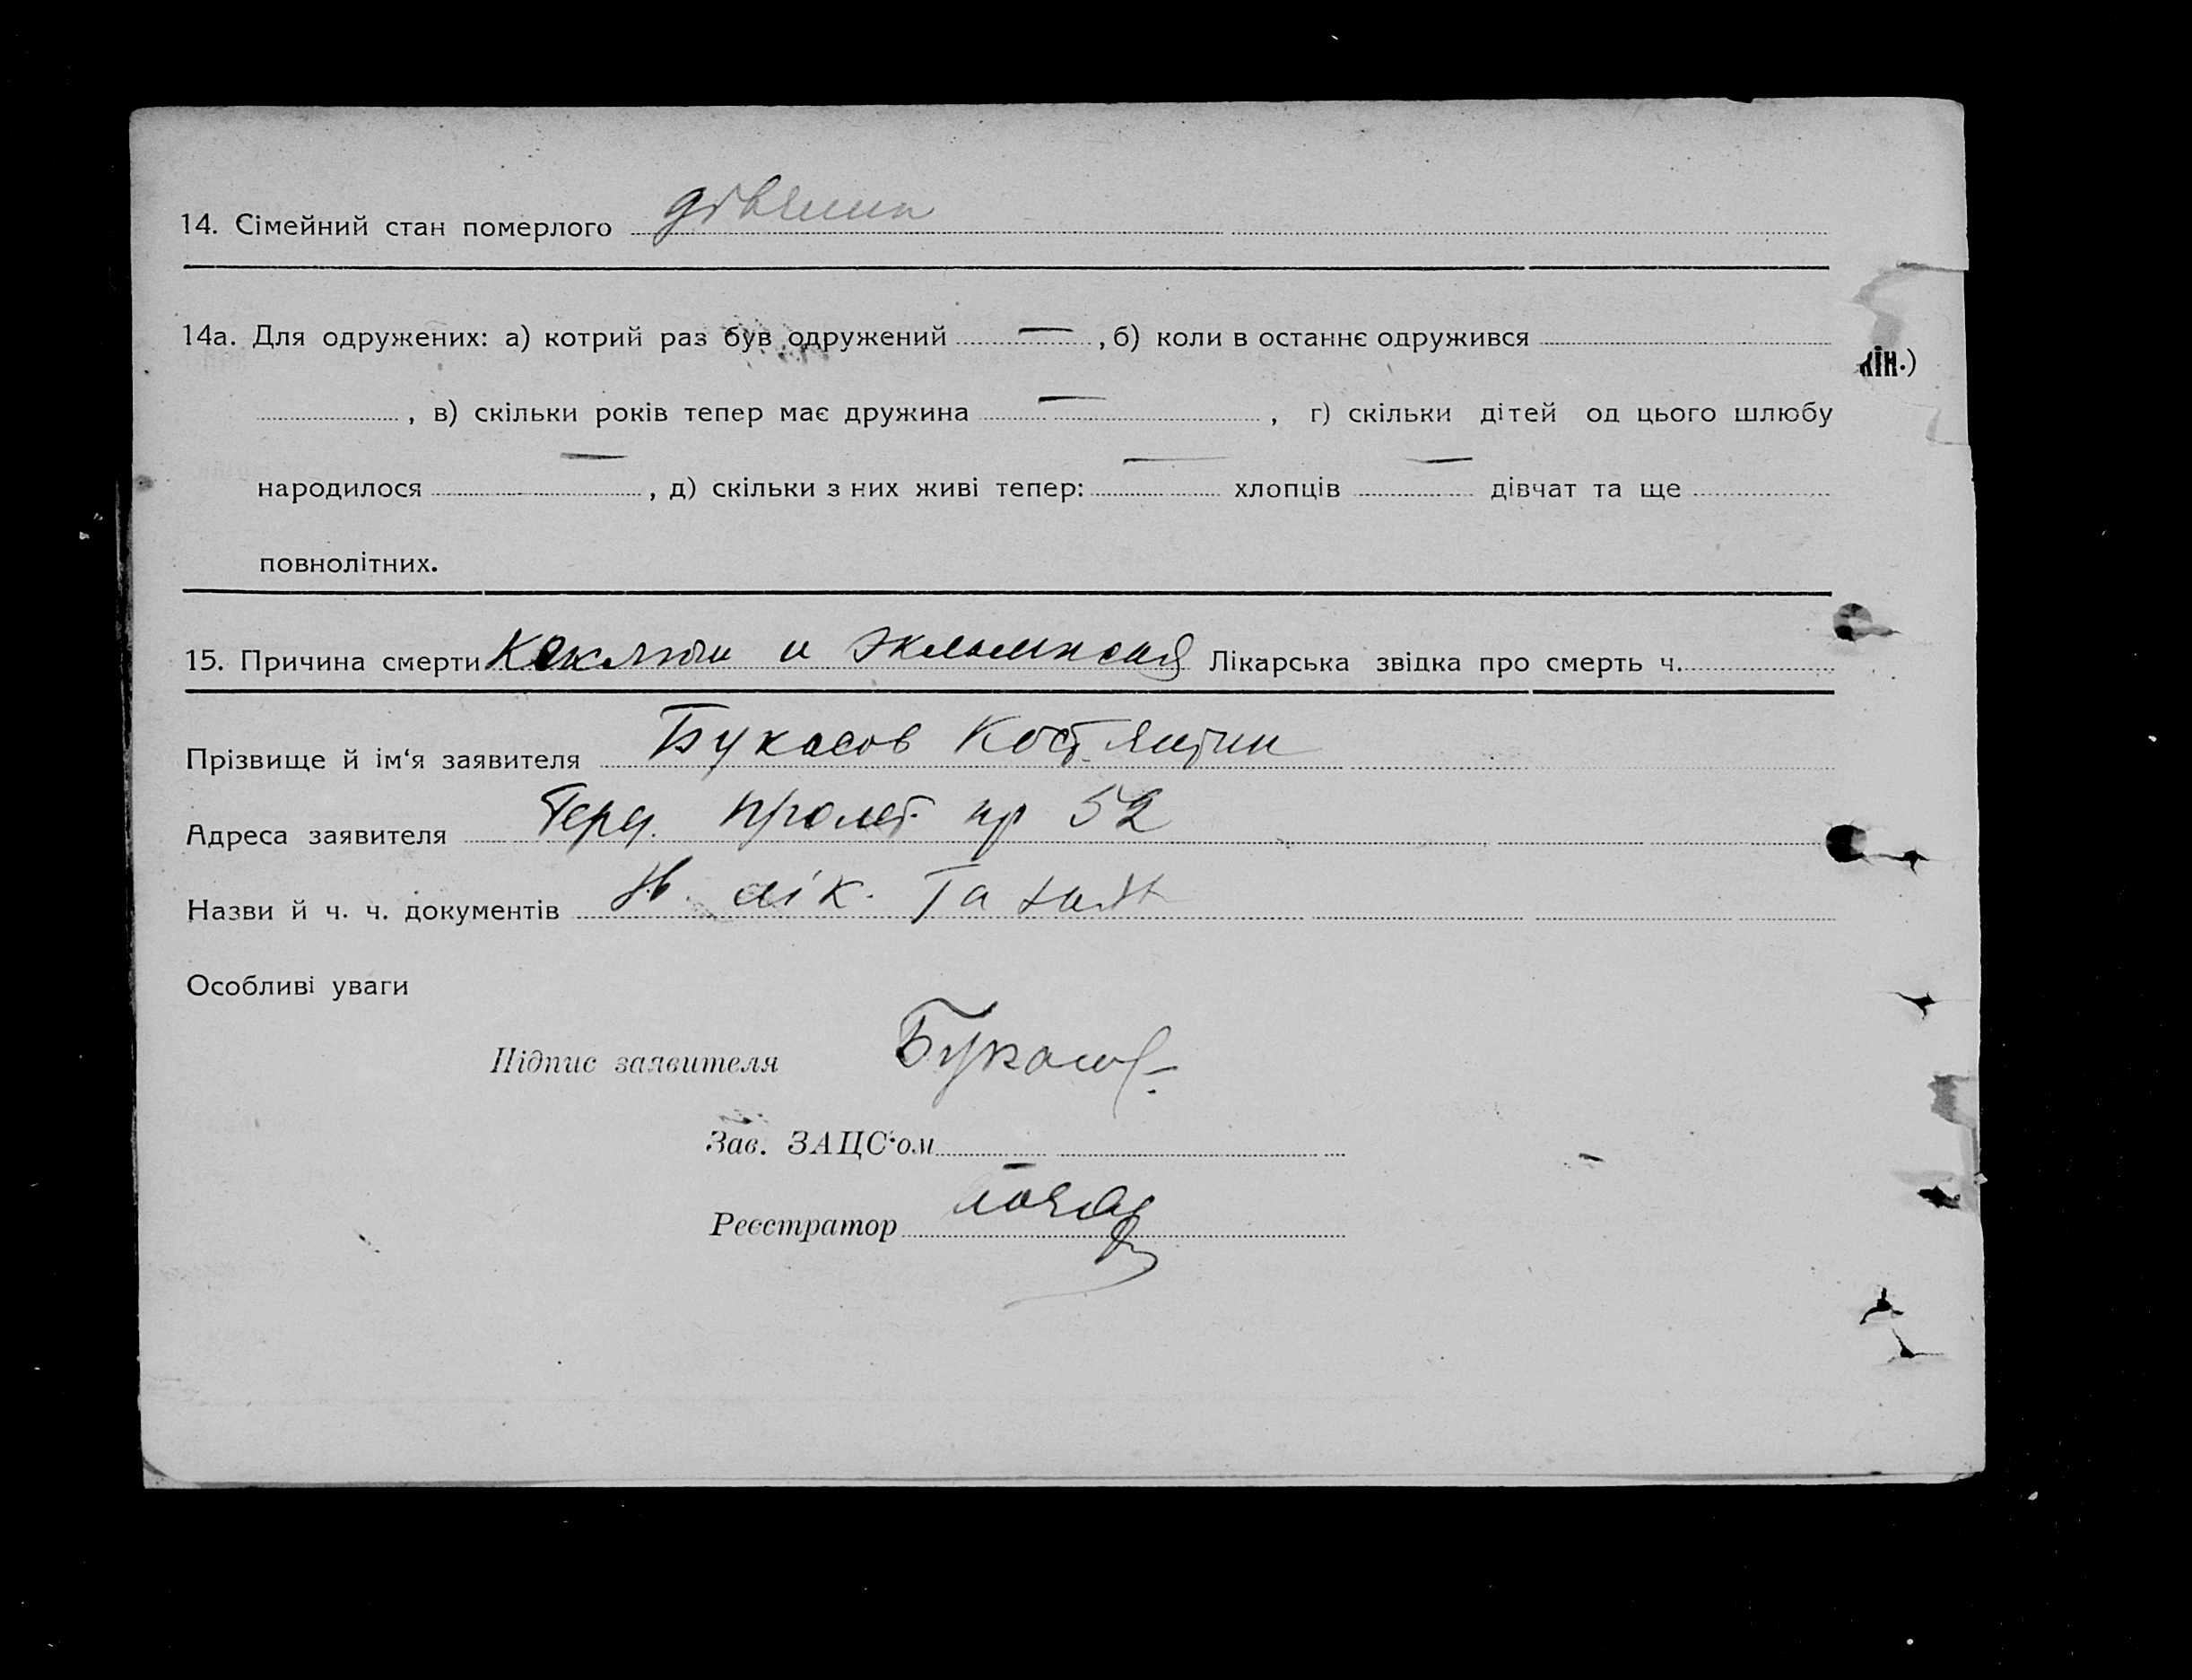 14. Сімейний стан померлого дівчина
14а. Для одружених: а) котрий раз був одружений — , б) коли в останнє одружився
кін.)
, в) скільки років тепер має дружина — , г) скільки дітей од цього шлюбу
народилося — , д) скільки з них живі тепер: — хлопців — дівчат та ще
повнолітних.
15. Причина смерти Коклюш и эклампсия Лікарська звідка про смерть ч.
Прізвище й ім'я заявителя Букасов Костянтин
Адреса заявителя Черв. пролет. 52
Назви й ч. ч. документів лік. та
Особливі уваги
Підпис заявителя Букасов
Зав. ЗАЦС'ом —
Реєстратор